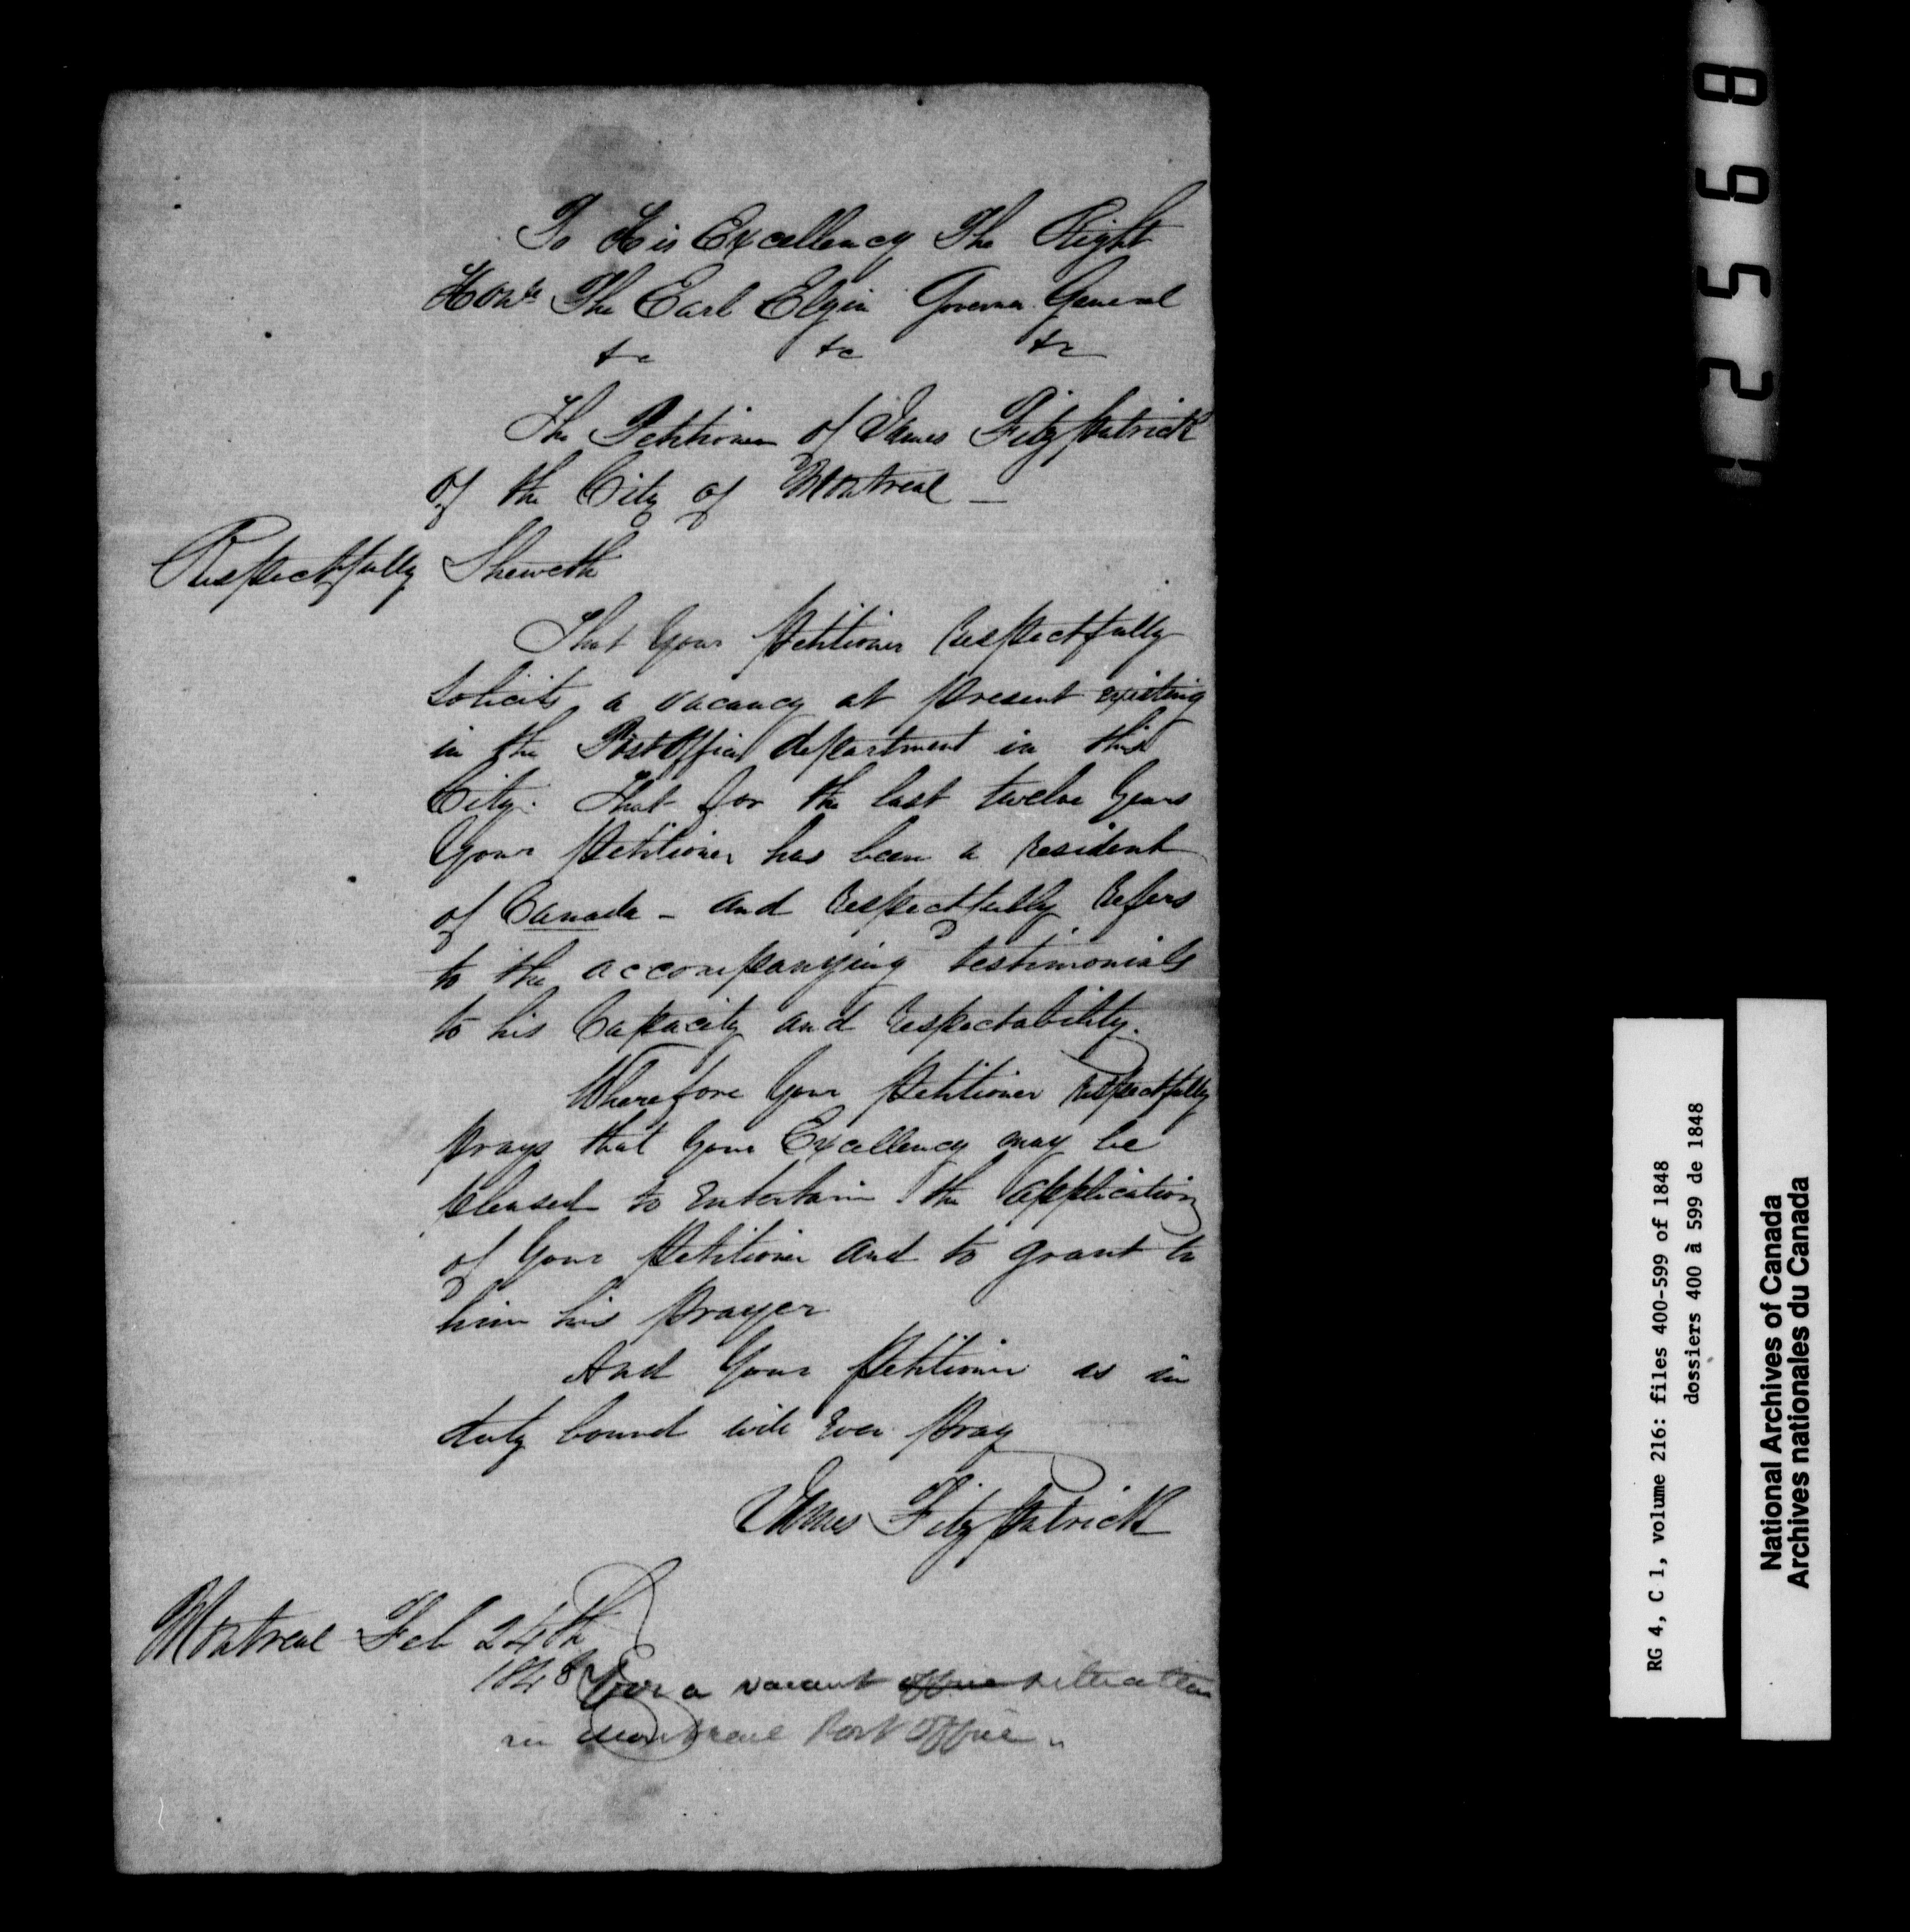 To His Excellency The Right
Honble The Earl Elgin Governor General
&c &c &c
The Petition of James Fitzpatrick
of the City of Montreal —
Respectfully Sheweth
That Your Petitioner Respectfully
Solicits a vacancy at present existing
in the Post Office department in this
City. That for the last twelve Years
Your Petitioner has been a resident
of Canada - and Respectfully Refers
to the accompanying testimonials
to his Capacity and respectability.
Wherefore Your Petitioner Respectfully
prays that Your Excellency may be
pleased to Entertain the application
of Your Petitioner and to grant to
him his prayer
And Your Petitioner as in
duty bound will Ever pray
James Fitzpatrick
Montreal Feb 24th
1848
For a vacant office situation
in Montreal Post Office"
25698
RG 4, C 1, volume 216: files 400-599 of 1848
dossiers 400 à 599 de 1848
National Archives of Canada
Archives nationales du Canada